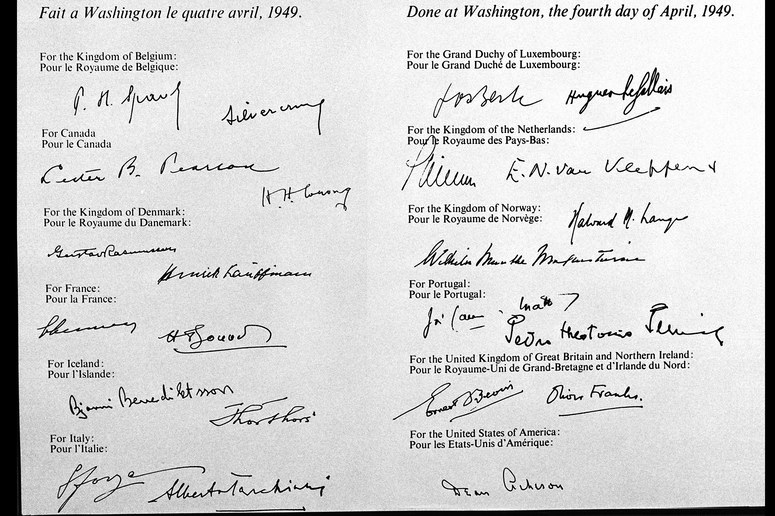 Fait a Washington le quatre avril, 1949.
For the Kingdom of Belgium:
Pour le Royaume de Belgique:
P. H. Spaak
Silvercruys
For Canada
Pour le Canada
Lester B. Pearson
H H Wrong
For the Kingdom of Denmark:
Pour le Royaume du Danemark:
Gustav Rasmussen
Henrik Kauffmann
For France:
Pour la France:
Schuman
H Bonnet
For Iceland:
Pour l'Islande:
Bjarni Benediktsson
Thor Thors
For Italy:
Pour l'Italie:
Sforza
Alberto Tarchiani
Done at Washington, the fourth day of April, 1949.
For the Grand Duchy of Luxembourg:
Pour le Grand Duché de Luxembourg:
Jos Bech
Hugues Le Gallais
For the Kingdom of the Netherlands:
Pour le Royaume des Pays-Bas:
E. N. van Kleffens
For the Kingdom of Norway:
Pour le Royaume de Norvège:
Halvard M. Lange
Wilhelm Munthe Morgenstierne
For Portugal:
Pour le Portugal:
José
Pedro Theotonio Pereira
For the United Kingdom of Great Britain and Northern Ireland:
Pour le Royaume-Uni de Grand-Bretagne et d'Irlande du Nord:
Ernest Bevin
Oliver Franks.
For the United States of America:
Pour les Etats-Unis d'Amérique:
Dean Acheson